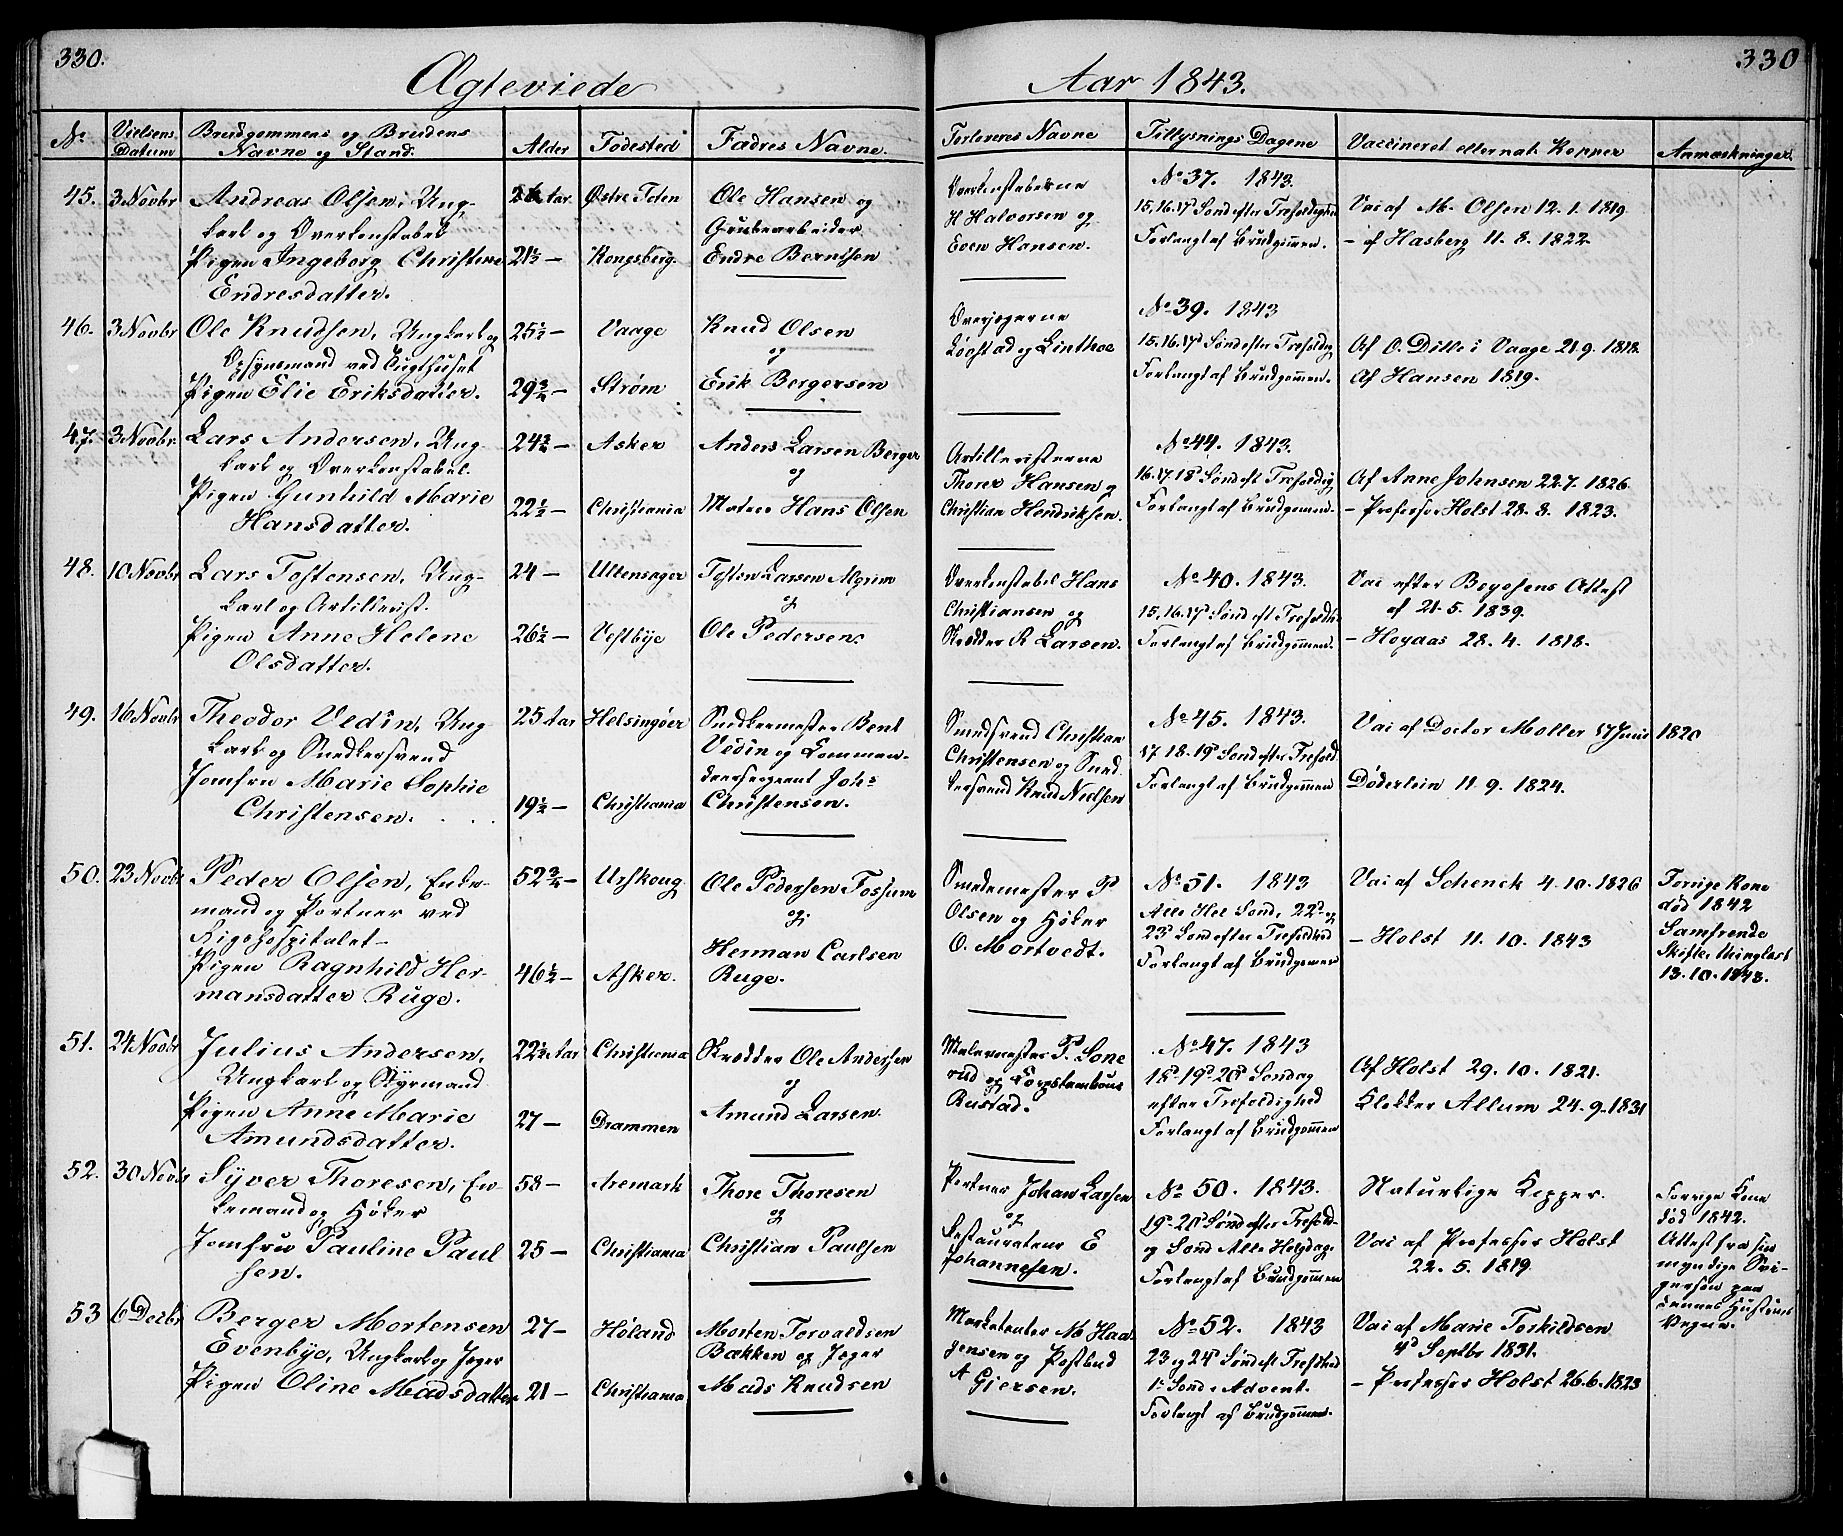 330.
Ægteviede
Aar 1843.
330
No
Vielsens Datum
Brudgommens og Brudens Navne og Stand.
Alder
Födested
Fadres Navne.
Forloveres Navne
Tillysnings Dagene
Vaccineret eller nat. Kopper
Anmærkninger.
45. 3 Novbr
Andreas Olsen, Ung-
karl og Overkonstabel
Pigen Ingeborg Christine
Endresdatter.
Østre Toten
21½ — Kongsberg.
Ole Hansen og
Endre Berntsen
Overkonstablerne
H Halvorsen og
Even Hansen.
No 37. 1843.
15, 16. 17d Sönd efter Trefoldighed
Forlangt af Brudgommen.
Vac af M. Olsen 12. 1. 1819
— af Hasberg 11. 8. 1822.
46. 3 Novbr
Ole Knudsen, Ungkarl og
Opsynsmand ved Tugthuset
Pigen Elie Eriksdatter.
25½ — Vaage
29¾ — Strøm
Knud Olsen
og
Erik Bergersen
Overjægerne
Løvstad og Linthoe
No 39. 1843
15, 16. 17d Sönd efter Trefoldig
Forlangt af Brudgommen.
Af O. Dille i Vaage 21. 9. 1818.
Af Hansen 1819.
47. 3 Novbr.
Lars Andersen, Ung-
karl og Overkonstabel.
Pigen Gunhild Marie
Hansdatter.
24¾ — Asker
22½ — Christiania
Anders Larsen Berger
og
Matros Hans Olsen
Artilleristerne
Thorer Hansen og
Christian Hendriksen.
No 44. 1843.
16. 17. 18d Sönd eft Trefoldig
Forlangt af Brudgommen.
Af Anne Johnsen 22. 7. 1826
— Professor Holst 28. 8. 1823.
48. 10 Novbr
Lars Tostensen, Ung-
karl og Artillerist.
Pigen Anne Helene
Olsdatter.
24 — Ullensager
26½ — Vestbye
Tosten Larsen Algrim
og
Ole Pedersen.
Overkonstabel Hans
Christiansen og
Skrædder R Larsen.
No 40. 1843.
15, 16. 17d Sönd eft Trefoldh.
Forlangt af Brudgommen.
Vac efter Boyesens Attest
af 21. 5. 1839.
— Hoyaas 28. 4. 1818.
49. 16 Novbr
Theodor Vedin, Ung
karl og Snedkersvend
Jomfru Marie Sophie
Christensen.
25 Aar Helsingöer
19½ — Christiania
Snedkermester Bent
Vedin og Comman-
deersergeant Johs
Christensen.
Smedsvend Christian
Christensen og Sned
kersvend Knud Nielsen
No 45. 1843.
17. 18. 19d Sönd efter Trefold
Forlangt af Brudgommen
Vac af Doctor Moller 17 Juni 1820
Døderlein 11. 9. 1824.
50. 23 Novbr
Peder Olsen, Enke-
mand og Portner ved
Rigshospitalet —
Pigen Ragnhild Her-
mansdatter Ruge.
52¾ — Urskoug
46½ — Asker.
Ole Pedersen Fossum
og
Herman Carlsen
Ruge.
Smedemester P
Olsen og Höker
O. Mortvedt.
No 51. 1843
Alle Hel Sönd, 22d og
23d Sönd efter Trefoldhed
Forlangt af Brudgommen
Vac af Schenck 4. 10. 1826
— Holst 11. 10. 1843
Forrige Kone
död 1842
Samfrende
Skifte thinglæst
13. 10. 1843.
51. 24 Novbr
Julius Andersen,
Ungkarl og Styrmand
Pigen Anne Marie
Amundsdatter.
22½ Aar Christiania
27 — Drammen
Skrædder Ole Andersen
og
Amund Larsen.
Malermester P. Sone
rud og
Rustad.
No 47. 1843
18d 19d 20d Söndag
efter Trefoldighed
Forlangt af Brudgommen
Af Holst 29. 10. 1821.
Klokker Allum 24. 9. 1831
52. 30 Novbr
Syver Thoresen, En-
kemand og Höker
Jomfru Pauline Paul
sen.
58 — Aremark
25 — Christiania
Thore Thoresen
og
Christian Paulsen
Portner Johan Larsen
og
Restaurateur E
Johannesen.
No 50. 1843.
19d 20d Sönd efter Trefold-
og Sönd Alle Helgdage
Forlangt af Brudgommen
Naturlige Kopper.
Vac af Professor Holst
22. 5. 1819.
Forrige Kone
död 1842.
Attest fra sin
myndige Svi-
gersön paa
hennes Hustrues
Vegne.
53 6 Decbr
Berger Mortensen
Evenbye, Ungkarl og Jæger
Pigen Oline Madsdatter
27 — Höland
21 — Christiania
Morten Torvaldsen
Bækken og Jæger
Mads Knudsen
Marketenter M Haa
gensen og Postbud
A Giersen.
No 52. 1843
23 og 24d Sönd eft Trefoldhed
1. Sönd i Advent.
Forlangt af Brudgommen.
Vac af Marie Torkildsen
4d Septbr 1831.
— Professor Holst 26. 6. 1823